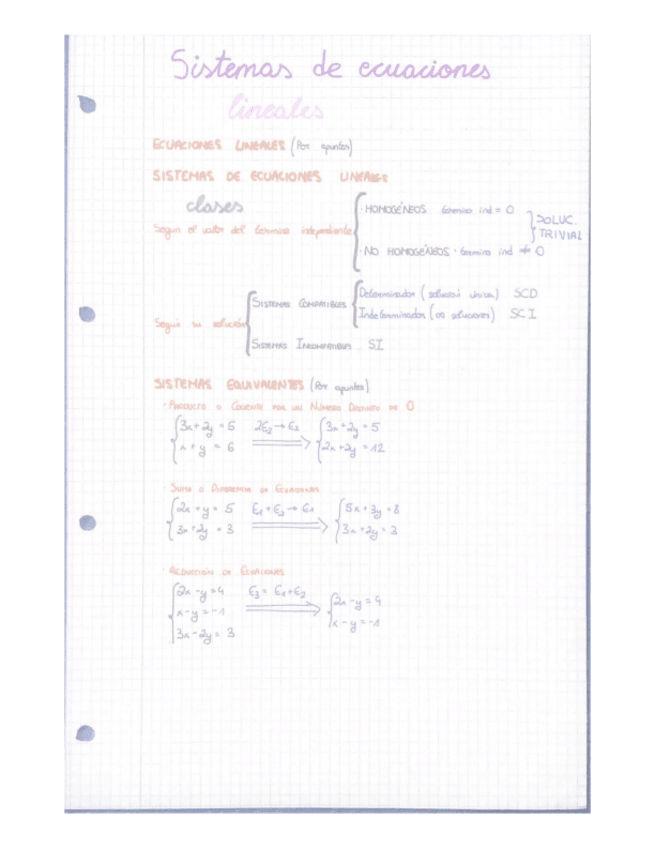 Sistemas de ecuaciones
lineales
ECUACIONES LINEALES (Por apuntes)
SISTEMAS DE ECUACIONES LINEALES
clases
Según el valor del término independiente
· HOMOGÉNEOS término ind = 0
· NO HOMOGÉNEOS · término ind ≠ 0
SOLUC.
TRIVIAL
Según su solución
SISTEMAS COMPATIBLES
Determinados (solución única) SCD
Indeterminados (∞ soluciones) SCI
SISTEMAS INCOMPATIBLES SI
SISTEMAS EQUIVALENTES (Por apuntes)
· PRODUCTO O COCIENTE POR UN NÚMERO DISTINTO DE 0
3x+2y = 5 2E2→E2 3x+2y = 5
x + y = 6 2x+2y = 12
· SUMA O DIFERENCIA DE ECUACIONES
2x + y = 5 E1+E2→E1 5x + 3y = 8
3x+2y = 3 3x+2y = 3
REDUCCIÓN DE ECUACIONES
2x - y = 4 E3 = E1+E2 2x - y = 4
x - y = -1 x - y = -1
3x - 2y = 3